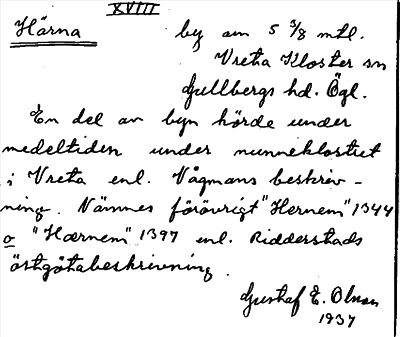 XVIII
Härna by om 5 5/8 mtl.
Vreta Kloster sn
Gullbergs hd. Ögl.
En del av byn hörde under
medeltiden under nunneklostret
i Vreta enl. Vågmans beskriv-
ning. Nämnes förövrigt "Hernem" 1344
o "Hærnem" 1397 enl. Ridderstads
östgötabeskrivning.
Gustaf E. Olsson
1937